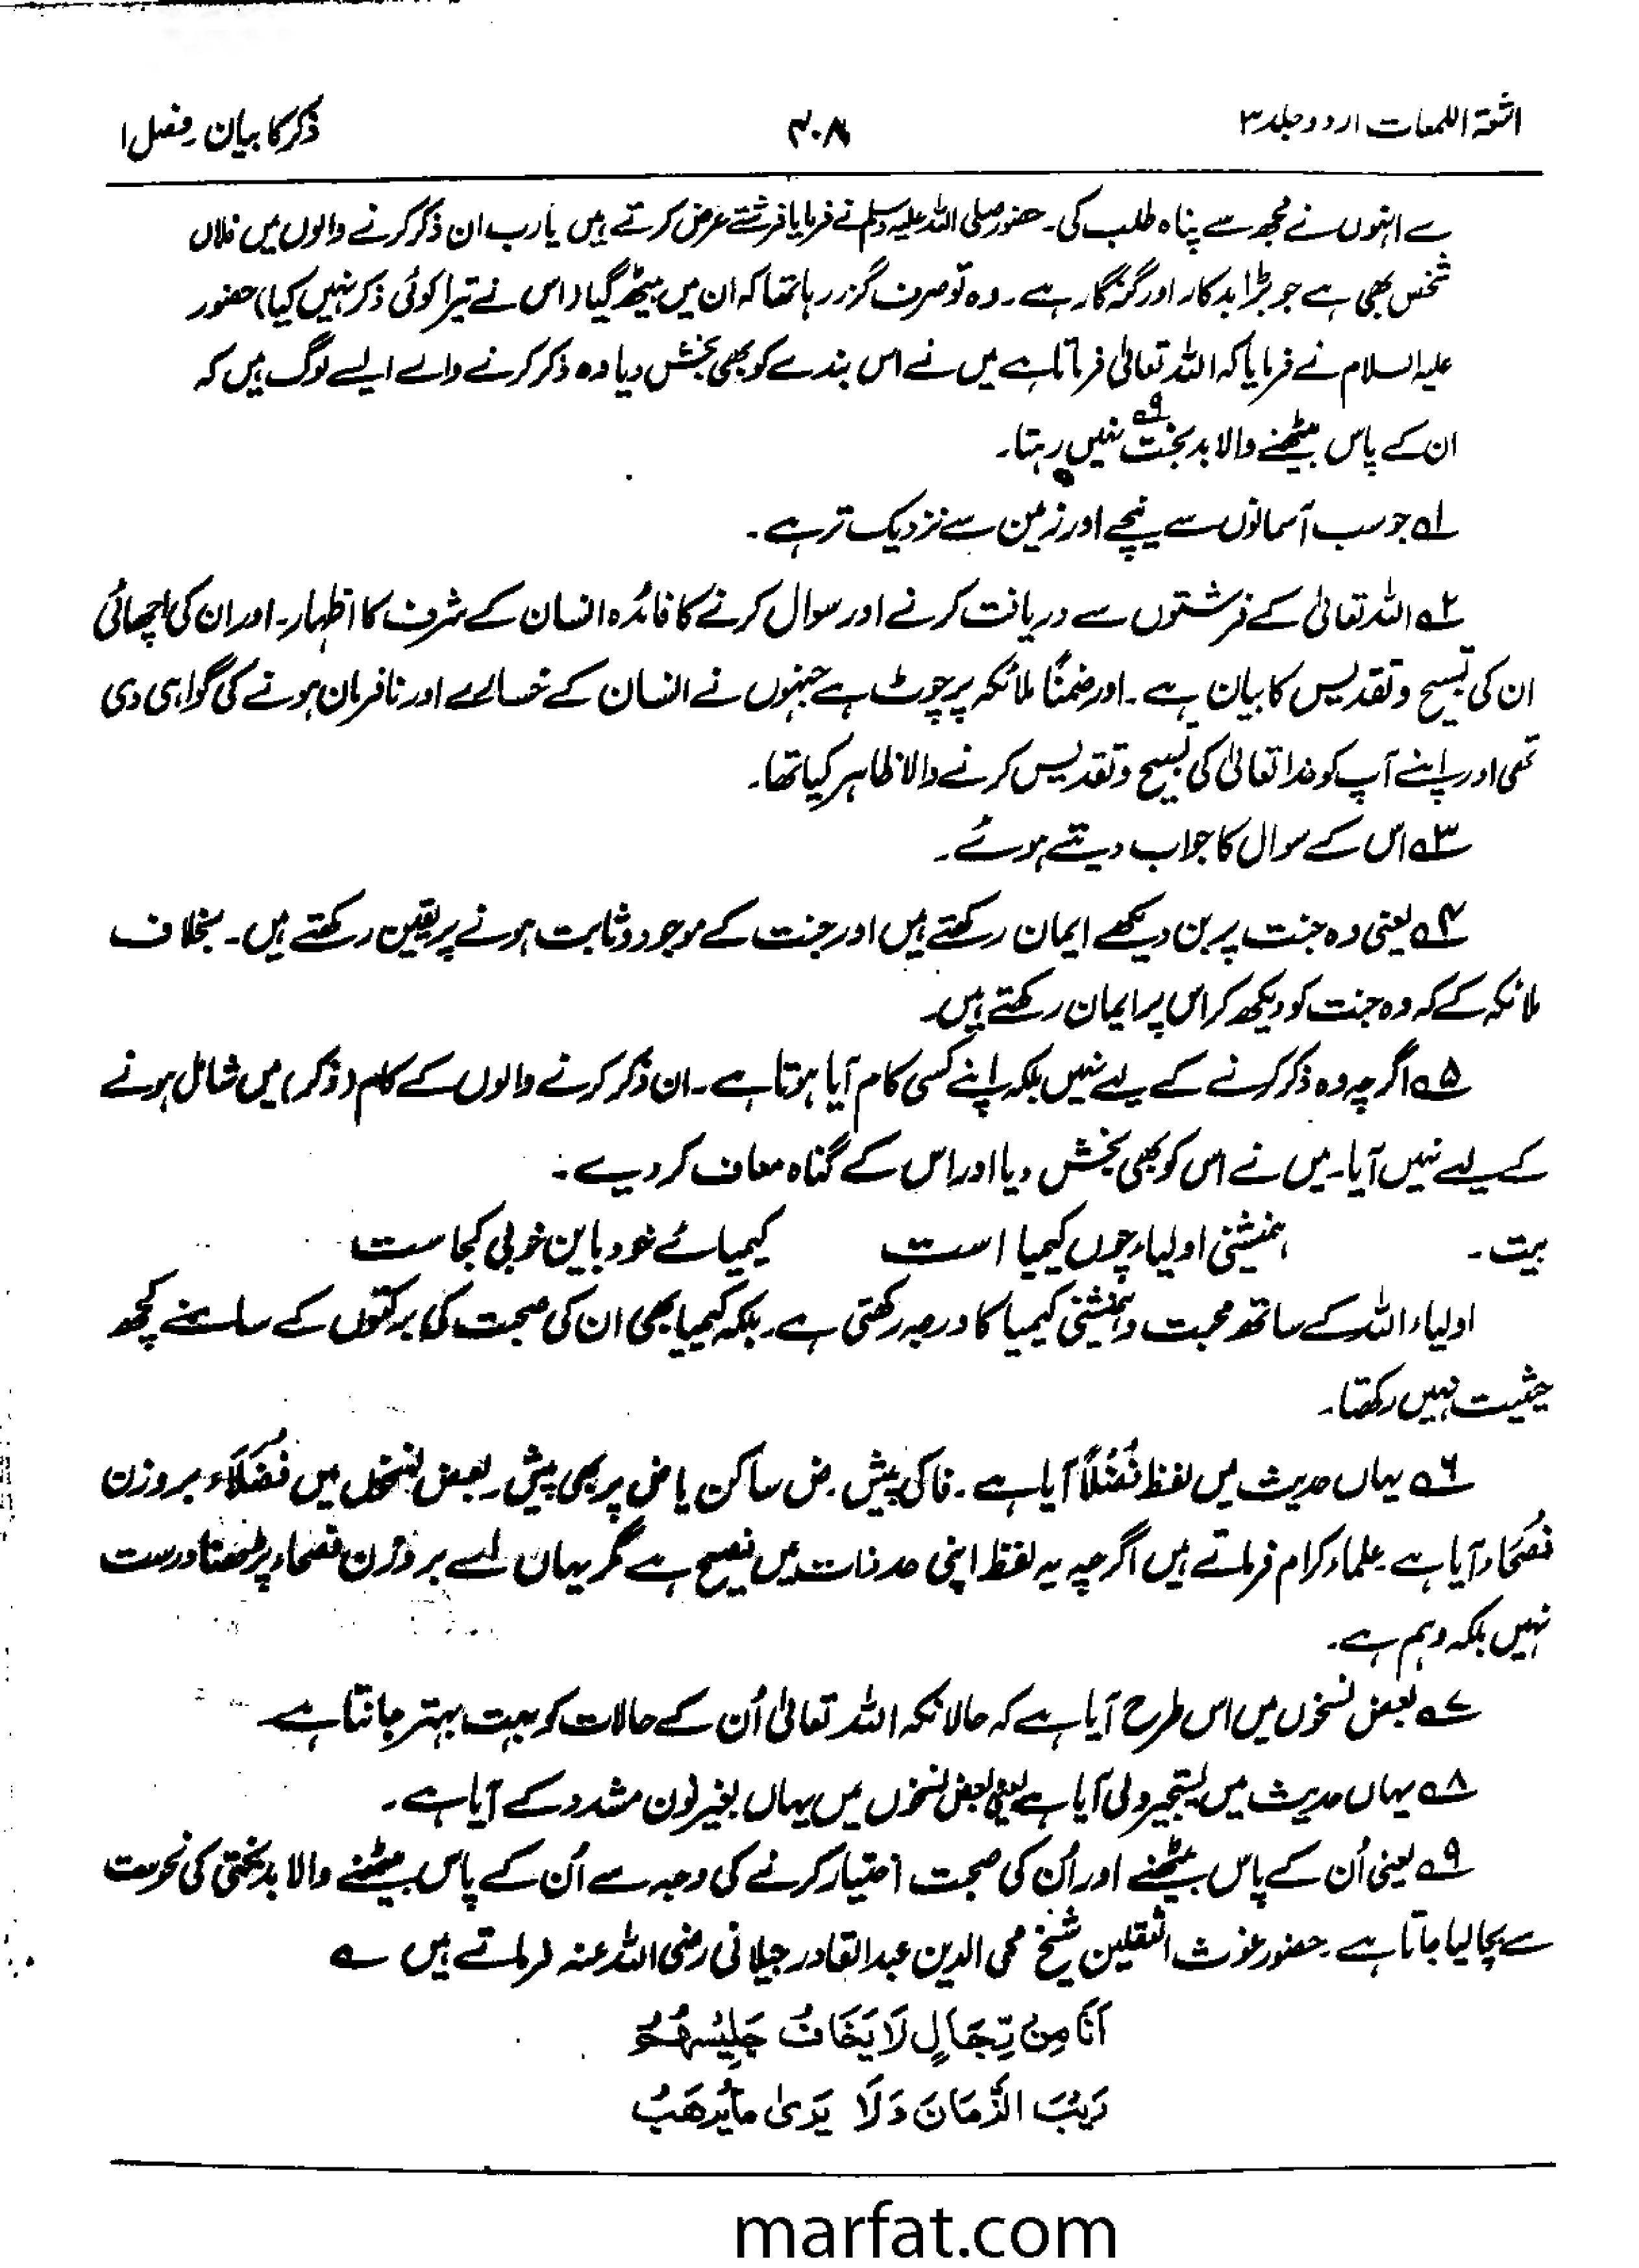 اشعۃ اللمعات اردو جلد ۳
۴۰۸
ذکر کا بیان۔ فصل ۱
سے انہوں نے مجھ سے پناہ طلب کی۔ حضور صلی اللہ علیہ وسلم نے فرمایا فرشتے عرض کرتے ہیں یا رب ان ذکر کرنے والوں میں فلاں
شخص بھی ہے جو بڑا بدکار اور گنہگار ہے۔ وہ تو صرف گزر رہا تھا کہ ان میں بیٹھ گیا (اس نے تیرا کوئی ذکر نہیں کیا) حضور
علیہ السلام نے فرمایا کہ اللہ تعالیٰ فرماتا ہے میں نے اس بندے کو بھی بخش دیا وہ ذکر کرنے والے ایسے لوگ ہیں کہ
ان کے پاس بیٹھنے والا بدبخت ۹؎ نہیں رہتا۔
۱؎ جو سب آسمانوں سے نیچے اور زمین سے نزدیک تر ہے۔
۲؎ اللہ تعالیٰ کے فرشتوں سے دریافت کرنے اور سوال کرنے کا فائدہ انسان کے شرف کا اظہار۔ اور ان کی اچھائی
ان کی تسبیح و تقدیس کا بیان ہے۔ اور ضمناً ملائکہ پر چوٹ ہے جنہوں نے انسان کے خسارے اور نافرمان ہونے کی گواہی دی
تھی اور اپنے آپ کو خدا تعالیٰ کی تسبیح و تقدیس کرنے والا ظاہر کیا تھا۔
۳؎ اس کے سوال کا جواب دیتے ہوئے۔
۴؎ یعنی وہ جنت پر بن دیکھے ایمان رکھتے ہیں اور جنت کے موجود و ثابت ہونے پر یقین رکھتے ہیں۔ بخلاف
ملائکہ کے کہ وہ جنت کو دیکھ کر اس پر ایمان رکھتے ہیں۔
۵؎ اگرچہ وہ ذکر کرنے کے لیے نہیں بلکہ اپنے کسی کام آیا ہوتا ہے۔ ان ذکر کرنے والوں کے کام (ذکر) میں شامل ہونے
کے لیے نہیں آیا۔ میں نے اس کو بھی بخش دیا اور اس کے گناہ معاف کر دیے۔
بیت۔ ہمنشینی اولیاء چوں کیمیا است کیمیائے خود باین خوبی کجاست
اولیاء اللہ کے ساتھ محبت و ہمنشینی کیمیا کا درجہ رکھتی ہے۔ بلکہ کیمیا بھی ان کی صحبت کی برکتوں کے سامنے کچھ
حیثیت نہیں رکھتا۔
۶؎ یہاں حدیث میں لفظ فُضُلًا آیا ہے۔ فا کی پیش۔ ض ساکن یا ض پر بھی پیش۔ بعض نسخوں میں فُضَلَاء بروزن
فُصَحَاء آیا ہے علماء کرام فرماتے ہیں اگرچہ یہ لفظ اپنی حد ذات میں فصیح ہے مگر یہاں اسے بروزن فصحاء پڑھنا درست
نہیں بلکہ وہم ہے۔
۷؎ بعض نسخوں میں اس طرح آیا ہے کہ حالانکہ اللہ تعالیٰ اُن کے حالات کو بہت بہتر جانتا ہے۔
۸؎ یہاں حدیث میں یستجیرونی آیا ہے یعنی بعض نسخوں میں یہاں بغیر نون مشدد کے آیا ہے۔
۹؎ یعنی اُن کے پاس بیٹھنے اور اُن کی صحبت اختیار کرنے کی وجہ سے اُن کے پاس بیٹھنے والا بدبختی کی نحوست
سے بچا لیا جاتا ہے۔ حضور غوث الثقلین شیخ محی الدین عبدالقادر جیلانی رضی اللہ عنہ فرماتے ہیں ؎
اَنَا مِنْ رِّجَالٍ لَا یَخَافُ جَلِیْسُهُمْ
رَیْبَ الزَّمَانِ وَلَا یَرٰی مَا یُرْهَبُ
marfat.com